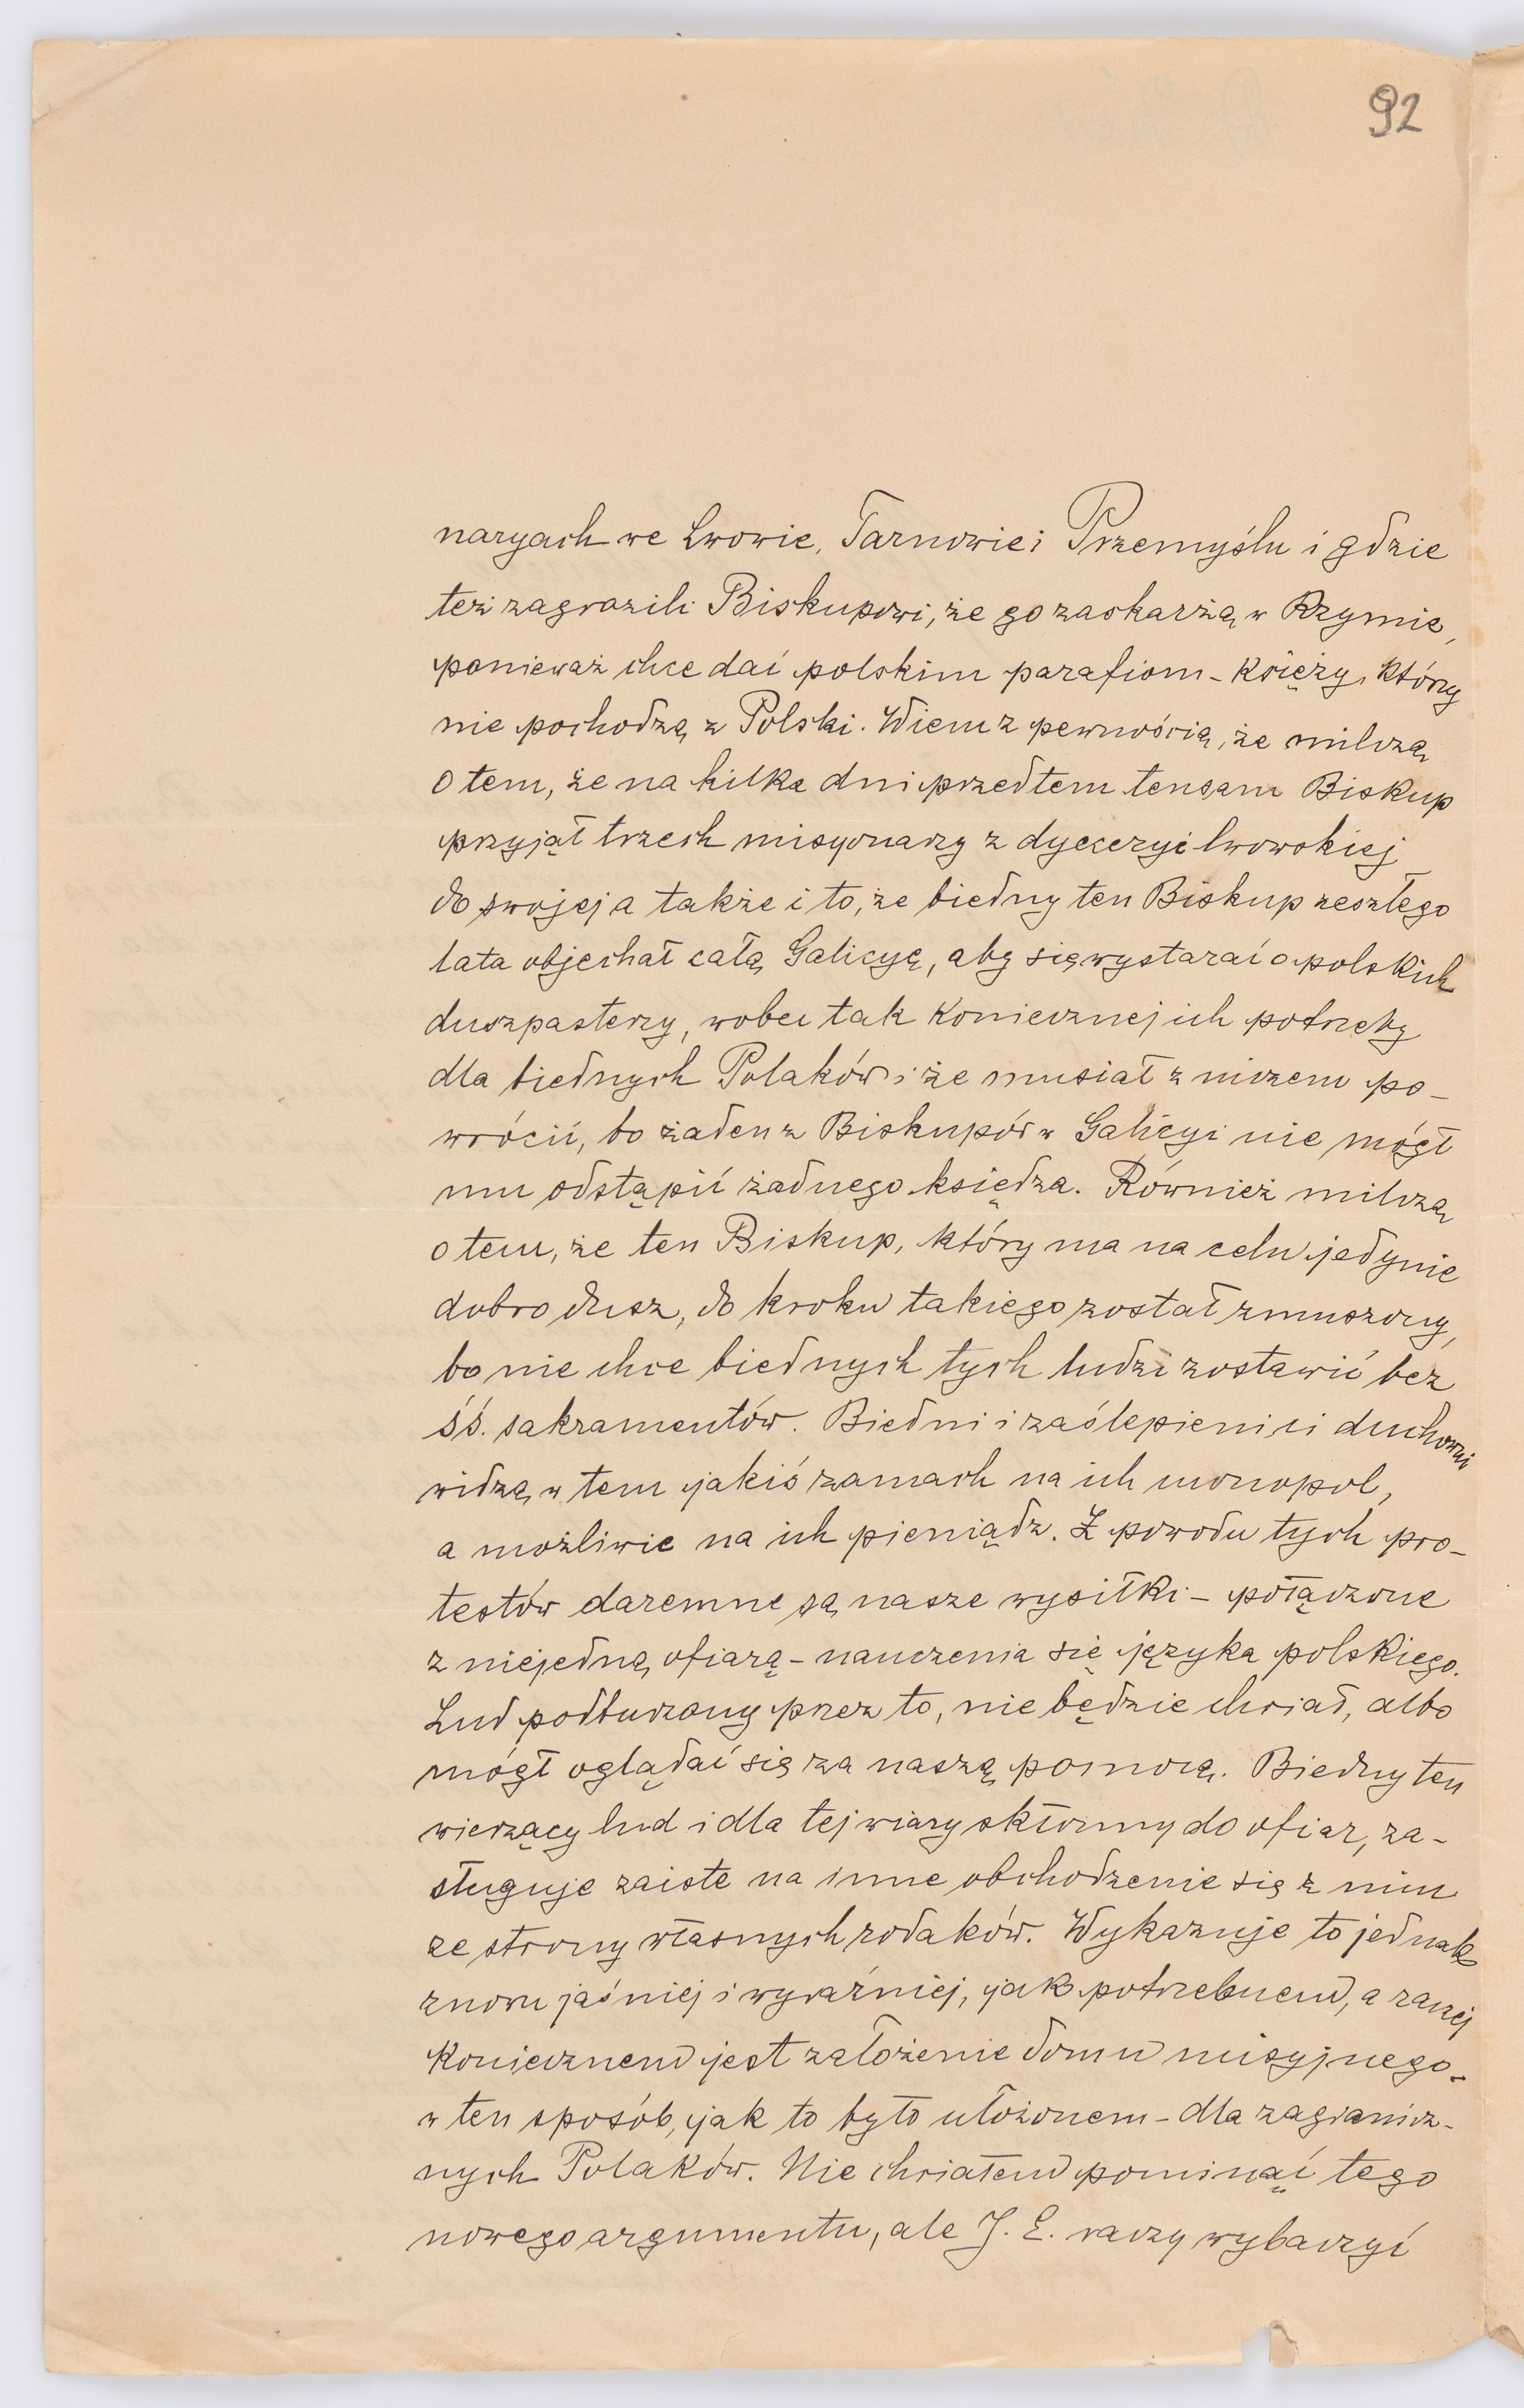 92
naryach we Lwowie, Tarnowie i Przemyślu i gdzie
też zagrozili Biskupowi, że go zaskarżą w Rzymie,
ponieważ chce dać polskim parafiom - księży, którzy
nie pochodzą z Polski. Wiem z pewnością, że milczą
o tem, że na kilka dni przedtem tensam Biskup
przyjął trzech misyonarzy z dyecezyi lwowskiej
do swojej a także i to, że biedny ten Biskup zeszłego
lata objechał całą Galicyę, aby się wystarać o polskich
duszpasterzy, wobec tak koniecznej ich potrzeby
dla biednych Polaków i że musiał z niczem po-
wrócić, bo żaden z Biskupów w Galicyi nie mógł
mu odstąpić żadnego księdza. Również milczą
o tem, że ten Biskup, który ma na celu jedynie
dobro dusz, do kroku takiego został zmuszony,
bo nie chce biednych tych ludzi zostawić bez
śś. sakramentów. Biedni i zaślepieni ci duchowni
widzą w tem jakiś zamach na ich monopol,
a możliwie na ich pieniądz. Z powodu tych pro-
testów daremne są nasze wysiłki - połączone
z niejedną ofiarą - nauczenia się języka polskiego.
Lud podburzony przez to, nie będzie chciał, albo
mógł oglądać się za naszą pomocą. Biedny ten
wierzący lud i dla tej wiary skłonny do ofiar, za-
sługuje zaiste na inne obchodzenie się z nim
ze strony własnych rodaków. Wykazuje to jednak
znowu jaśniej i wyraźniej, jak potrzebnem, a raczej
koniecznem jest założenie domu misyjnego -
w ten sposób, jak to było ułożonem - dla zagranicz-
nych Polaków. Nie chciałem pominąć tego
nowego argumentu, ale J. E. raczy wybaczyć